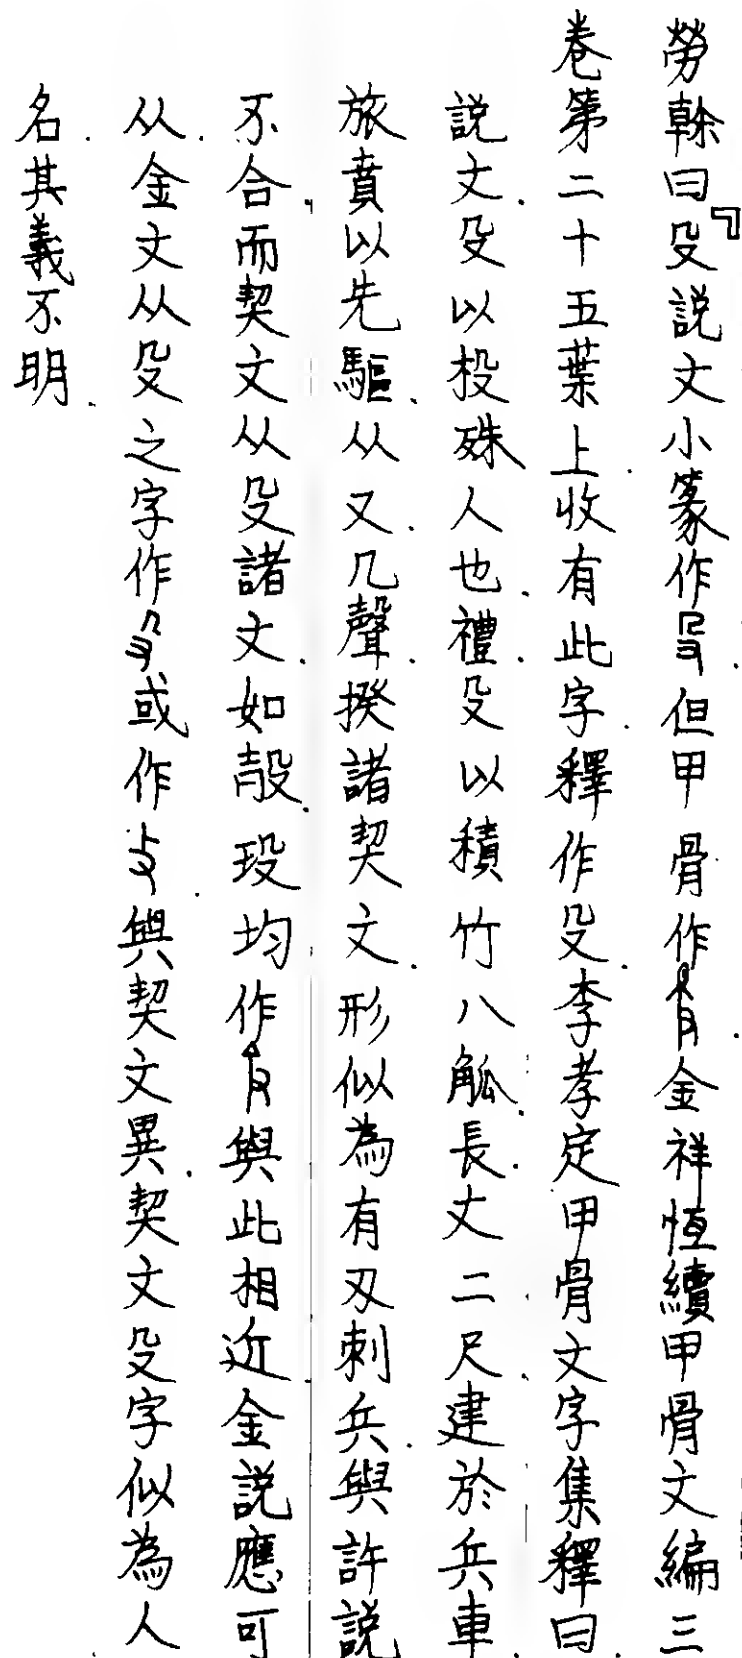 勞榦曰『殳說文小篆作但甲骨作金祥恆續甲骨文編三
卷第二十五葉上收有此字釋作殳李孝定甲骨文字集釋曰
說文殳以杸殊人也禮殳以積竹八觚長丈二尺建於兵車
旅賁以先驅从又几聲揆諸契文形似為有刃刺兵與許說
不合而契文从殳諸文如㱿𤣰均作與此相近金說應可
从金文从殳之字作或作與契文異契文殳字似為人
名其義不明